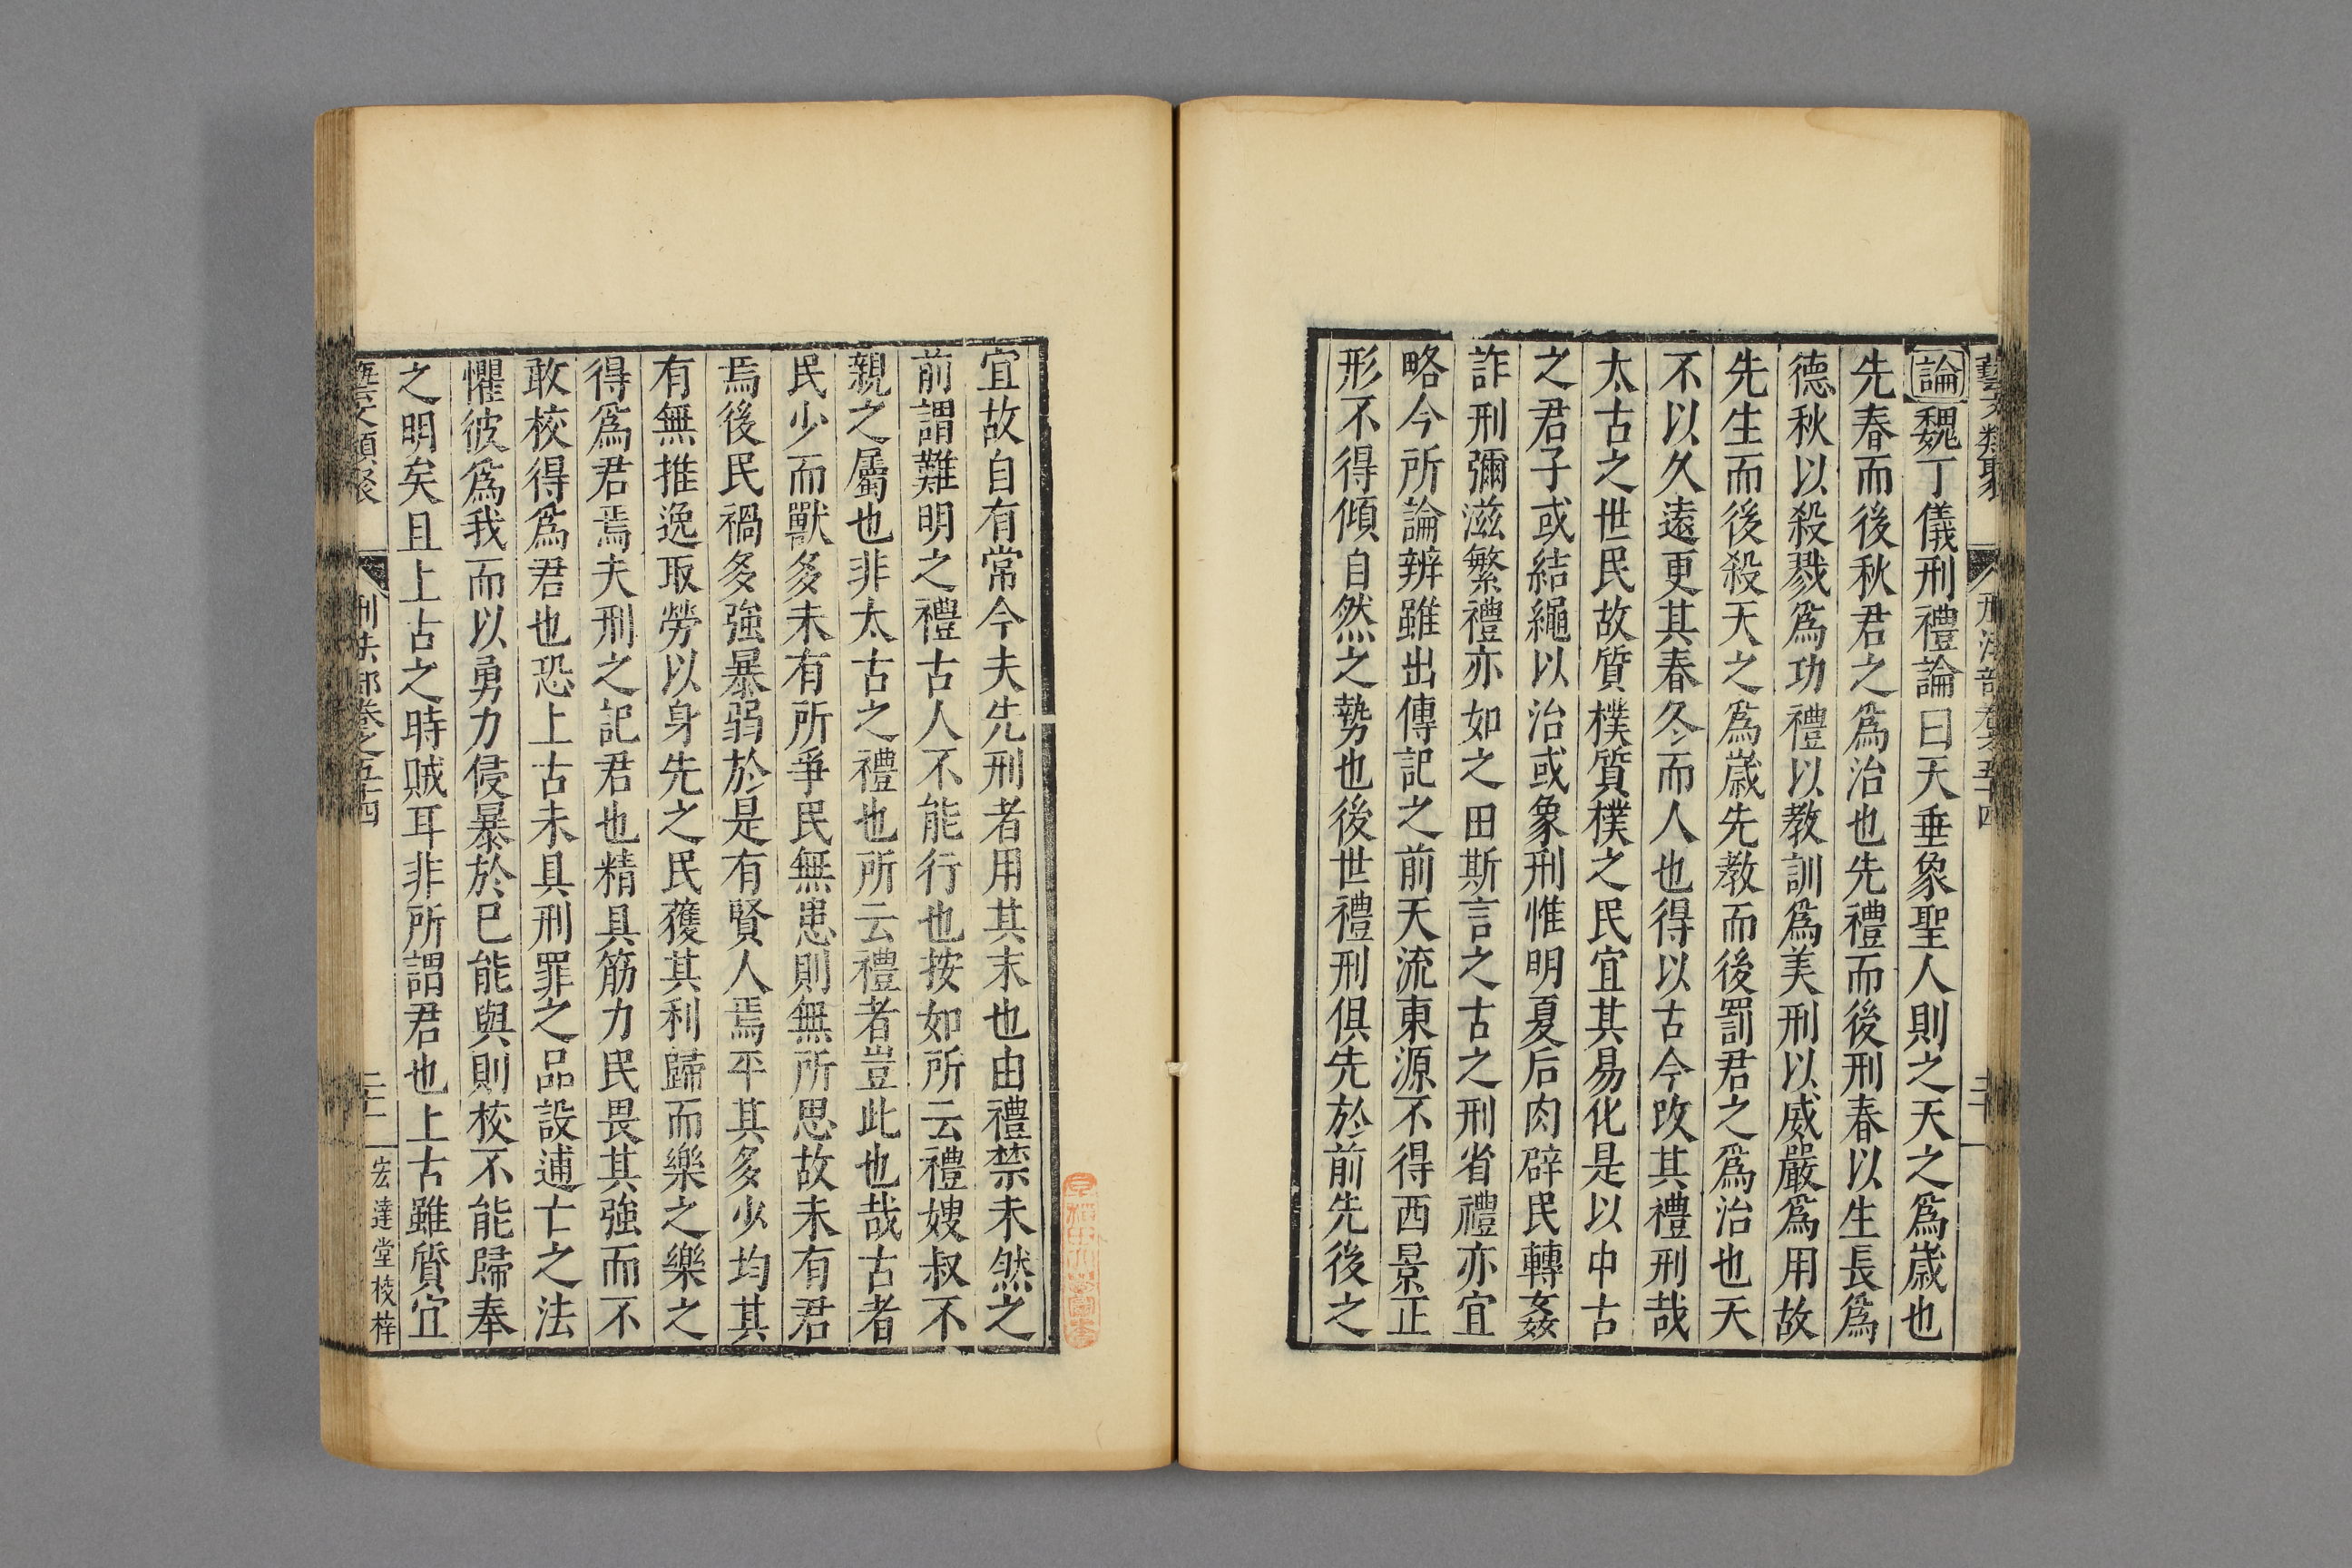 藝文類聚 刑法部卷之五十四
論魏丁儀刑禮論曰天垂象聖人則之天之爲歲也
先春而後秋君之爲治也先禮而後刑春以生長爲
德秋以殺戮爲功禮以教訓爲美刑以威嚴爲用故
先生而後殺天之爲歲先教而後罰君之爲治也天
不以久遠更其春冬而人也得以古今改其禮刑哉
太古之世民故質樸質樸之民宜其易化是以中古
之君子或結繩以治或象刑惟明夏后肉辟民轉姦
詐刑彌滋繁禮亦如之田斯言之古之刑省禮亦宜
略今所論辨雖出傳記之前天流東源不得西景正
形不得傾自然之勢也後世禮刑俱先於前先後之
宜故自有常今夫先刑者用其末也由禮禁未然之
前謂難明之禮古人不能行也按如所云禮嫂叔不
親之屬也非太古之禮也所云禮者豈此也哉古者
民少而獸多未有所爭民無患則無所思故未有君
焉後民禍多強暴弱於是有賢人焉平其多少均其
有無推逸取勞以身先之民獲其利歸而樂之樂之
得爲君焉夫刑之記君也精具筋力民畏其強而不
敢校得爲君也恐上古未具刑罪之品設逋亡之法
懼彼爲我而以勇力侵暴於己能與則校不能歸奉
之明矣且上古之時賊耳非所謂君也上古雖質宜
藝文類聚 刑法部卷之五十四 宏達堂校梓